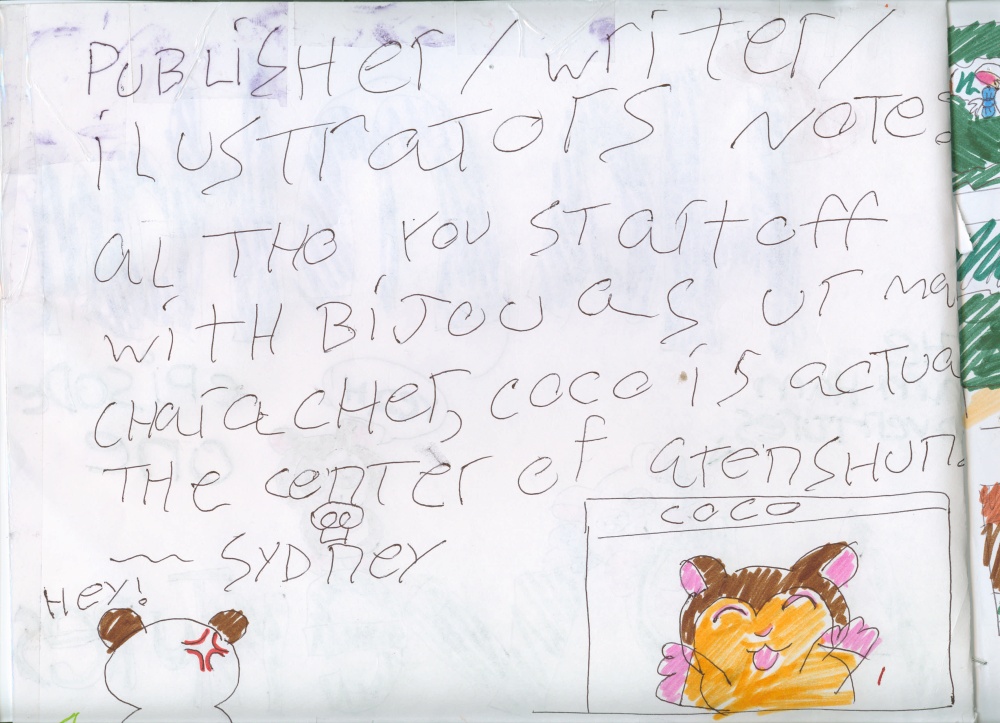 PUBLiSHer / writer /
iLUSTraTOrS NOTes
aLTHO YOU STart off
wiTH BiJOU aS Ur ma
CHaraCHer, COCO iS aCTUa
THe CenTer of aTenSHUn.
~ SYDney
Hey!
COCO